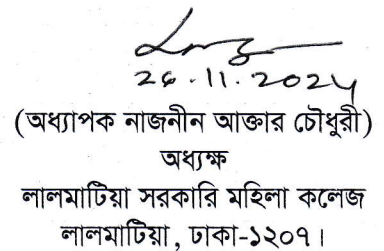 26.11.2024
(অধ্যাপক নাজনীন আক্তার চৌধুরী)
অধ্যক্ষ
লালমাটিয়া সরকারি মহিলা কলেজ
লালমাটিয়া, ঢাকা-১২০৭।